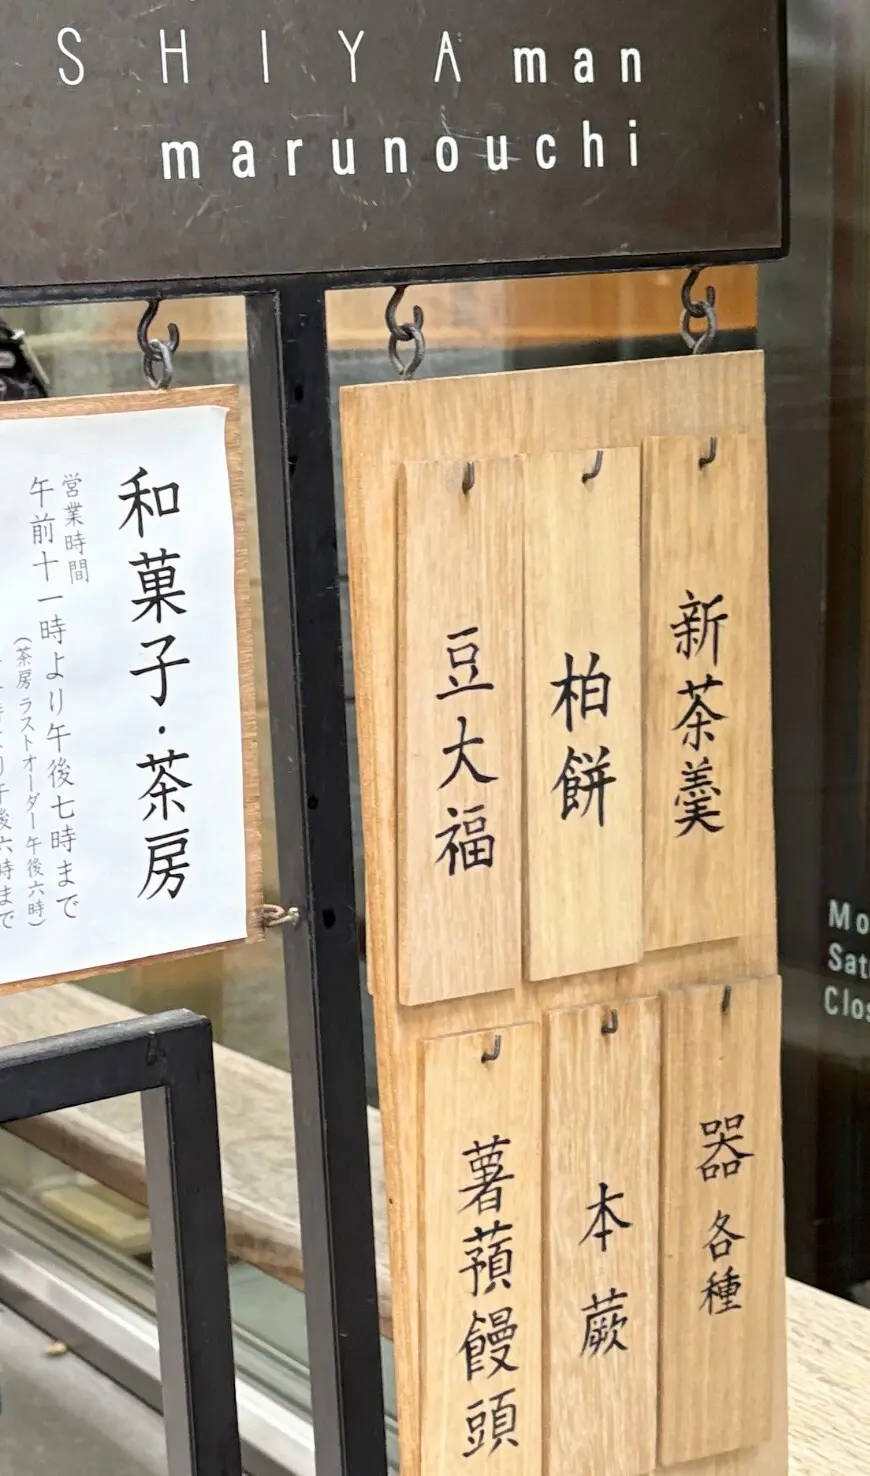 SHIYA man
marunouchi
和菓子・茶房
営業時間
午前十一時より午後七時まで
(茶房 ラストオーダー 午後六時)
午後六時まで
新茶羹
柏餅
豆大福
器 各種
本蕨
薯蕷饅頭